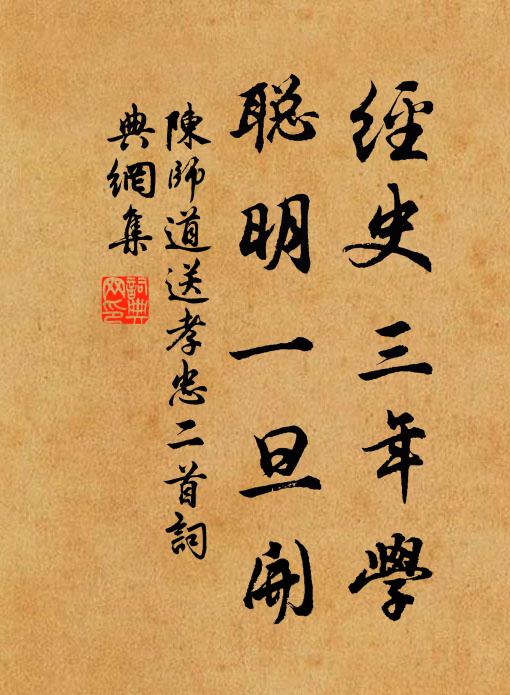 經史三年學
聪明一旦開
陳師道送孝忠二首詞
典網集
詞典
网印